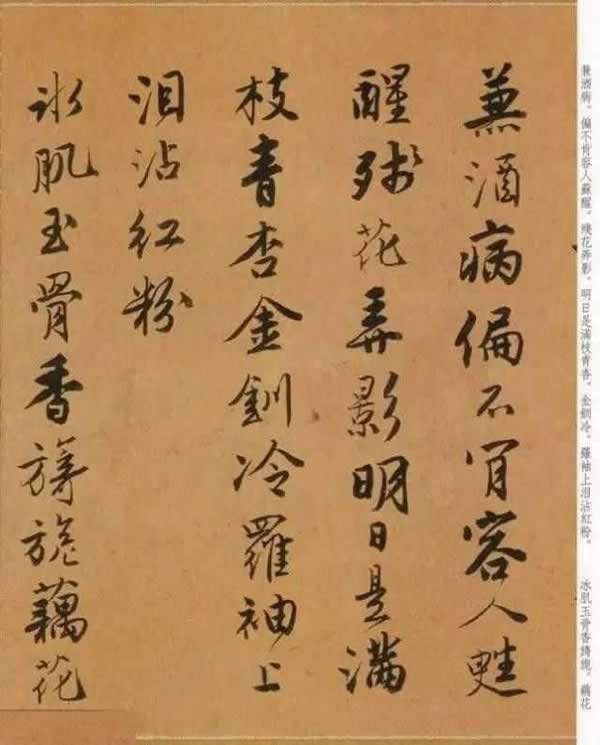 兼酒病偏不肯容人甦
醒殘花弄影明日是滿
枝青杏金釧冷羅袖上
泪沾紅粉
冰肌玉骨香旖旎藕花
兼酒病。偏不肯容人蘇醒。殘花弄影。明日是滿枝青杏。金釧冷。羅袖上泪沾紅粉。 冰肌玉骨香旎。藕花